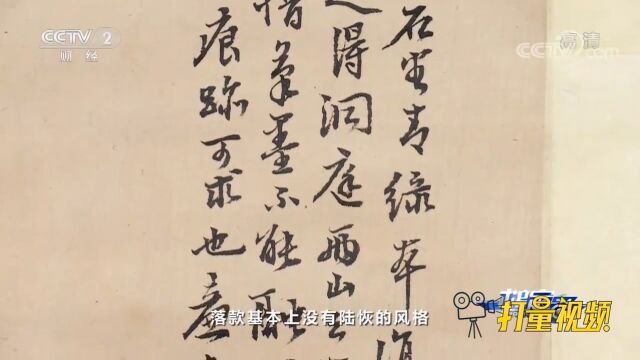 CCTV 2
财经
CCTV.com 高清
石 青緑
得洞庭西山
惜筆墨不能融
痕跡可求也
落款基本上没有陆恢的风格
打量视频